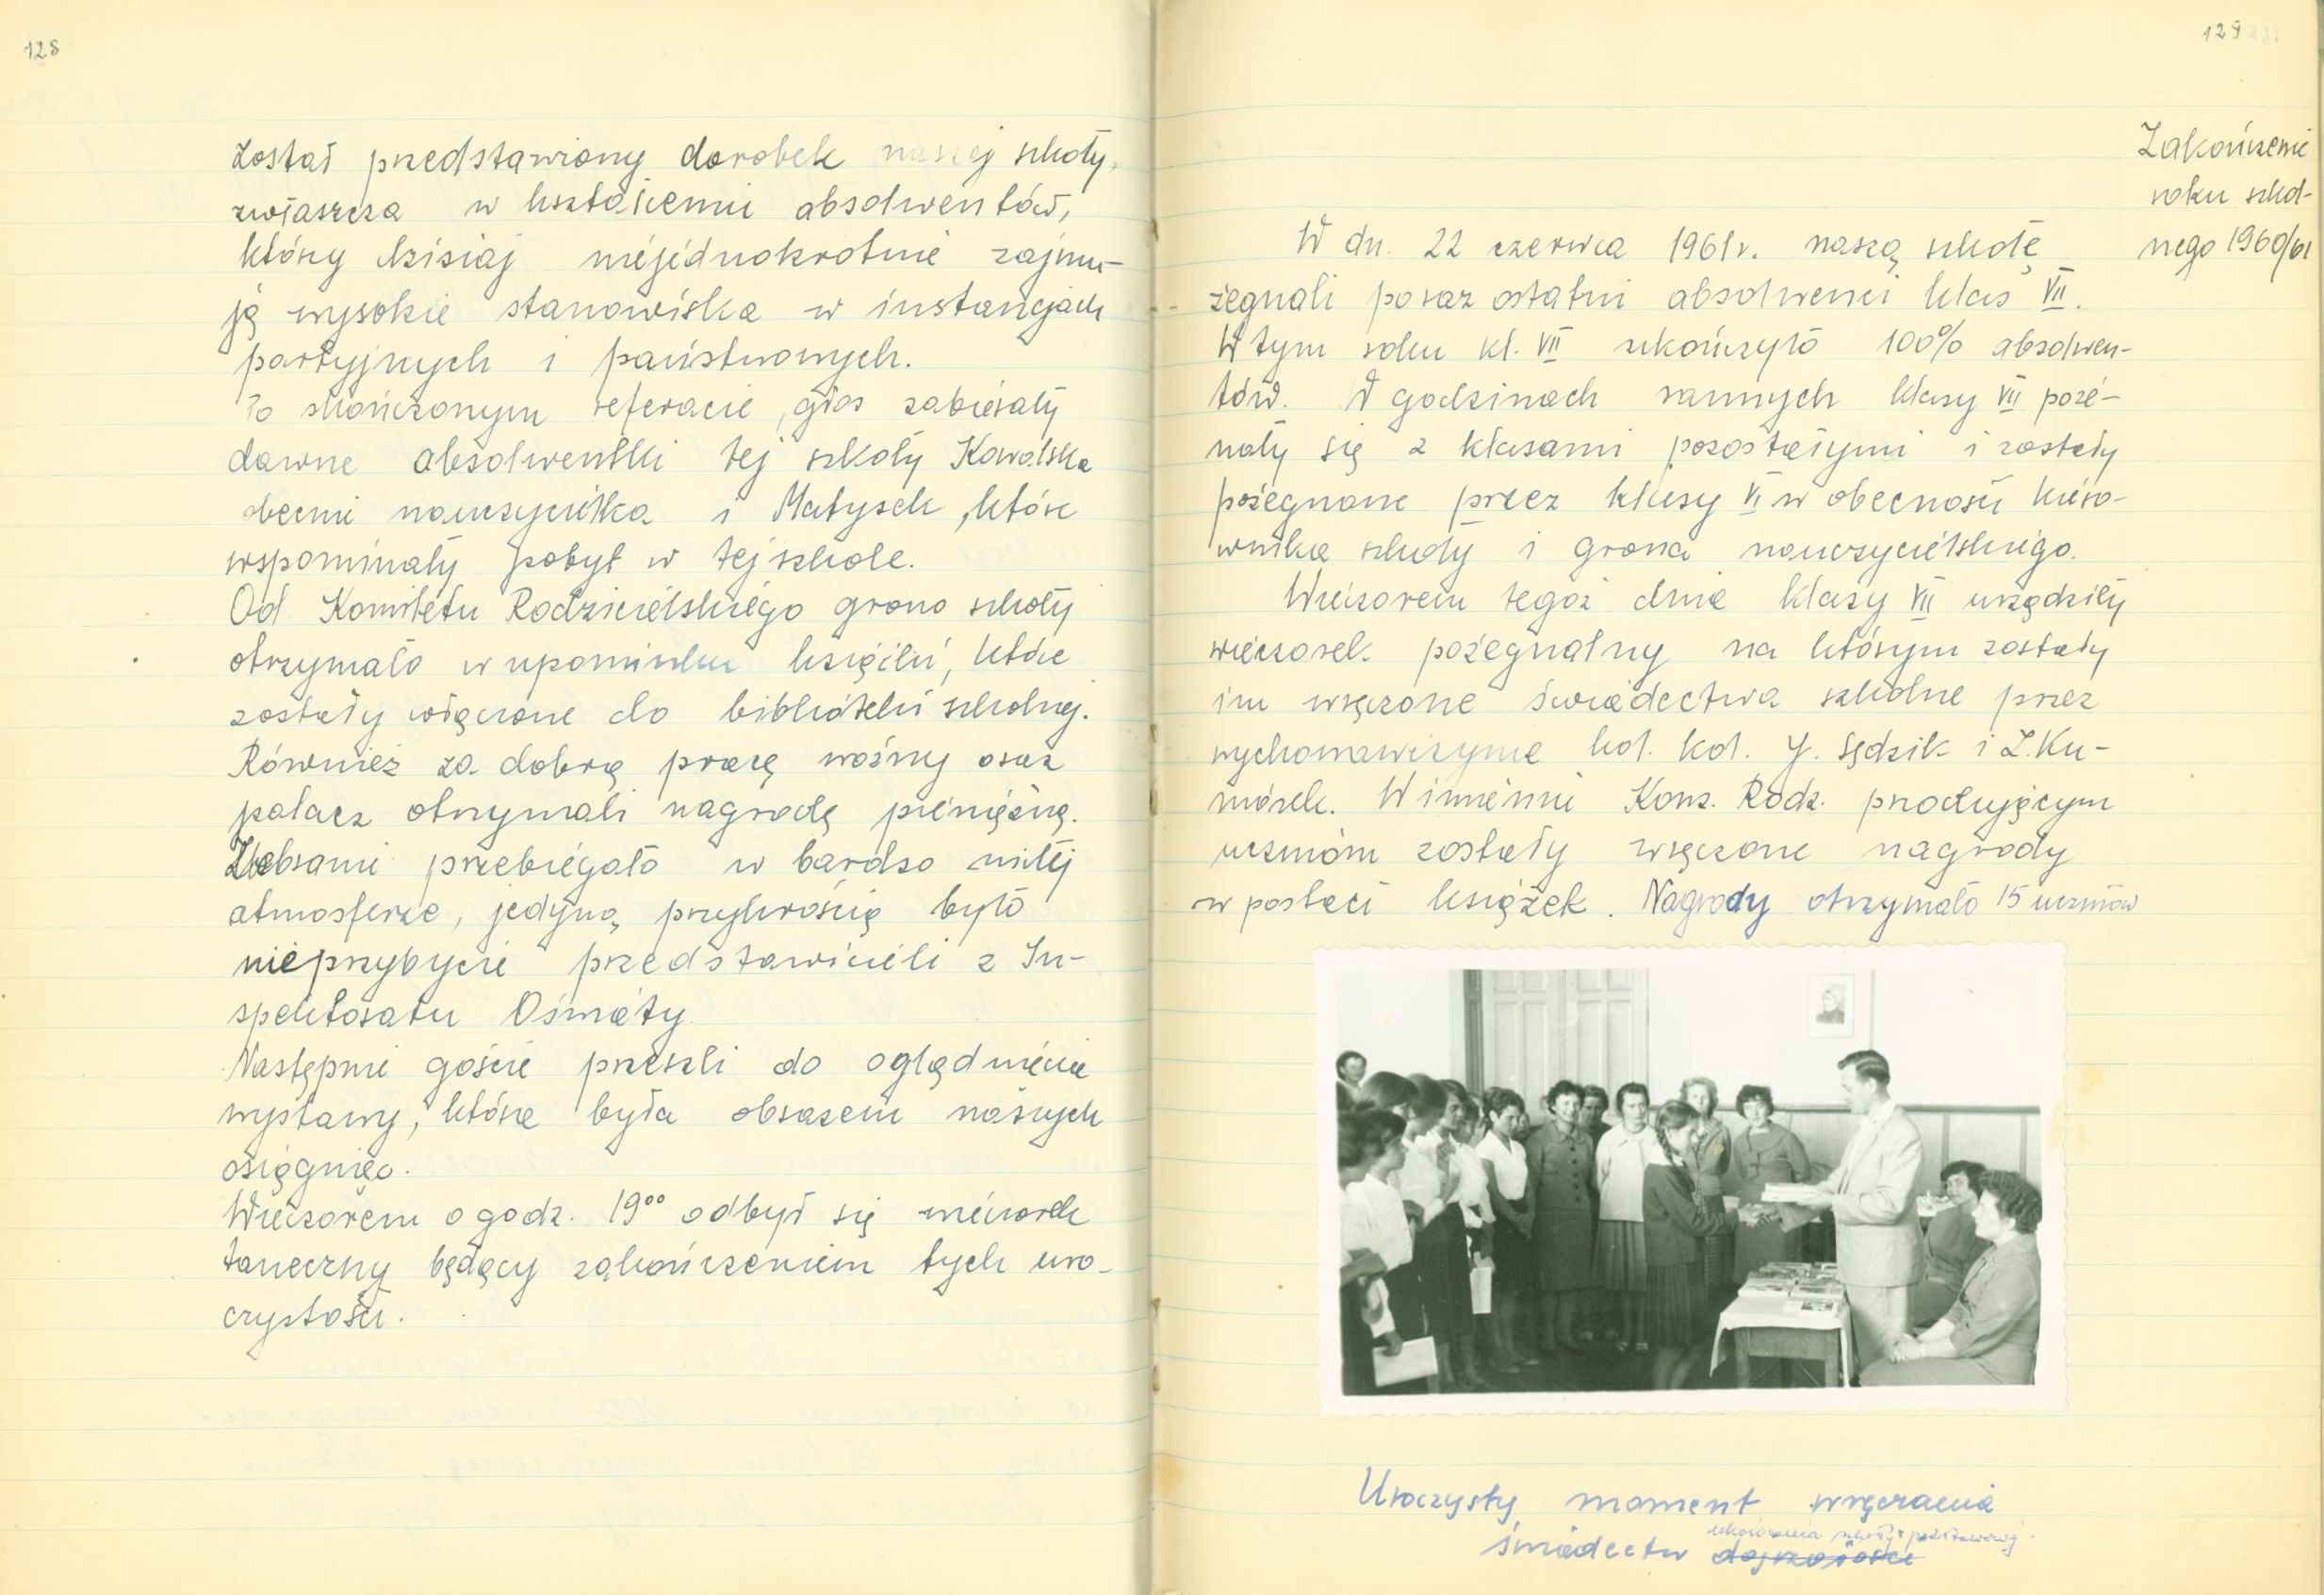 128
został przedstawiony dorobek naszej szkoły,
zwłaszcza w kształceniu absolwentów,
którzy dzisiaj niejednokrotnie zajmu-
ją wysokie stanowiska w instancjach
partyjnych i państwowych.
Po skończonym referacie, głos zabierały
dawne absolwentki tej szkoły Kowalska
obecnie nauczycielka i Matysek, które
wspominały pobyt w tej szkole.
Od Komitetu Rodzicielskiego grono szkoły
otrzymało w upominku książki, które
zostały włączone do biblioteki szkolnej.
Również za dobrą pracę woźny oraz
palacz otrzymali nagrodę pieniężną.
przebiegało w bardzo miłej
atmosferze, jedyną przykrością było
nieprzybycie przedstawicieli z In-
spektoratu Oświaty.
Następnie goście przeszli do oglądnięcia
wystawy, która była obrazem naszych
osiągnięć.
Wieczorem o godz. 19⁰⁰ odbył się wieczorek
taneczny będący zakończeniem tych uro-
czystości.
129
Zakończenie
roku szkol-
nego 1960/61
W dn. 22 czerwca 1961r. naszą szkołę
żegnali po raz ostatni absolwenci klas VII.
W tym roku kl. VII ukończyło 100% absolwen-
tów. W godzinach rannych klasy VII poże-
nały się z klasami pozostałymi i zostały
pożegnane przez klasy VI w obecności kiero-
wnika szkoły i grona nauczycielskiego.
Wieczorem tegoż dnia klasy VII urządziły
wieczorek pożegnalny na którym zostały
im wręczone świadectwa szkolne przez
wychowawczynie kol. kol. J. Sędzik i Z. Ku-
morek. W imieniu Kom. Rodz. przodującym
uczniom zostały wręczone nagrody
w postaci książek. Nagrody otrzymało 15 uczniów
Uroczysty moment wręczania
ukończenia szkoły podstawowej.
świadectw dojrzałości